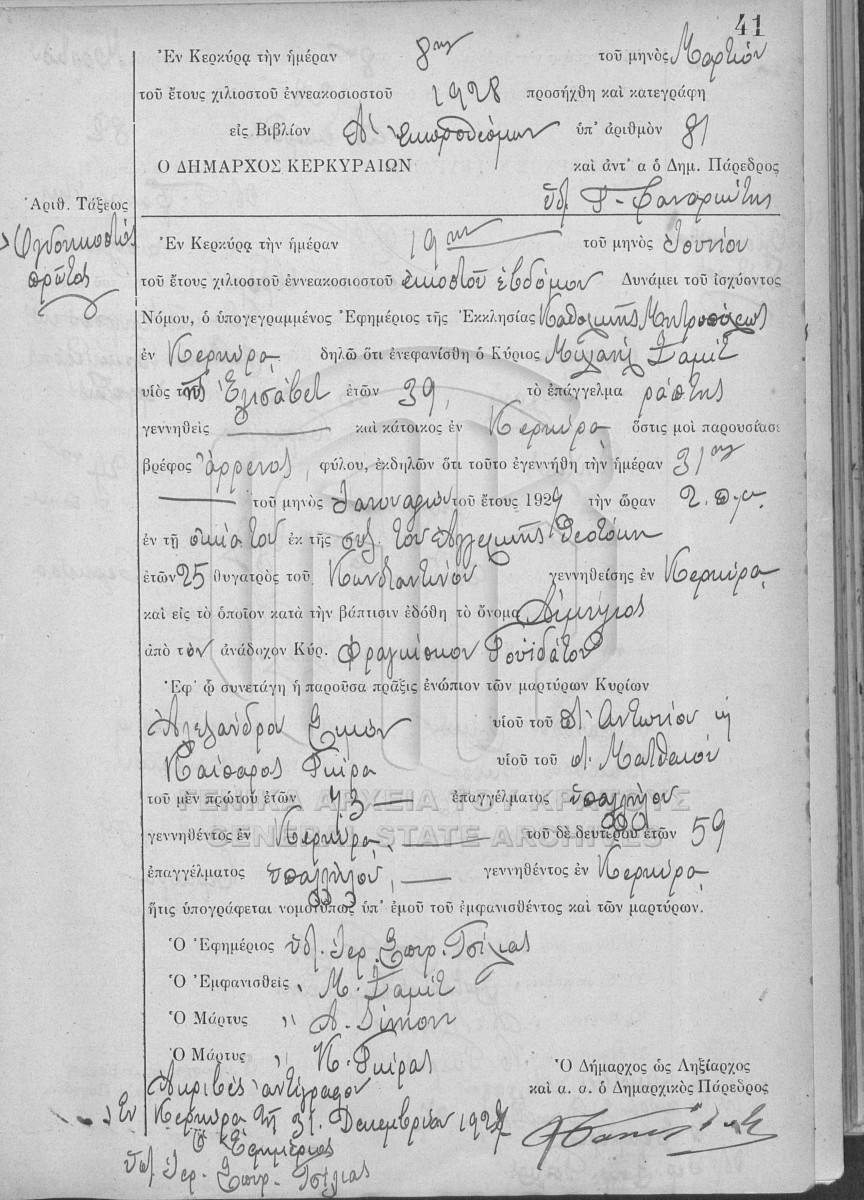 41
Ἐν Κερκύρᾳ τὴν ἡμέραν 8ην τοῦ μηνὸς Μαρτίου
τοῦ ἔτους χιλιοστοῦ ἐννεακοσιοστοῦ 1928 προσήχθη καὶ κατεγράφη
εἰς Βιβλίον Α' ἐκπροθέσμων ὑπ' ἀριθμὸν 81
Ὁ ΔΗΜΑΡΧΟΣ ΚΕΡΚΥΡΑΙΩΝ καὶ ἀντ' α ὁ Δημ. Πάρεδρος
Ἀριθ. Τάξεως
Ὀγδοηκοστὸς
πρῶτος
Ἐν Κερκύρᾳ τὴν ἡμέραν 19ην τοῦ μηνὸς Ἰουνίου
τοῦ ἔτους χιλιοστοῦ ἐννεακοσιοστοῦ εἰκοστοῦ ἑβδόμου Δυνάμει τοῦ ἰσχύοντος
Νόμου, ὁ ὑπογεγραμμένος Ἐφημέριος τῆς Ἐκκλησίας Καθολικῆς Μητροπόλεως
ἐν Κερκύρᾳ δηλῶ ὅτι ἐνεφανίσθη ὁ Κύριος Μιχαὴλ Σαμὶτ
υἱὸς τῆς Ἐλισάβετ ἐτῶν 39, τὸ ἐπάγγελμα ράπτης
γεννηθεὶς καὶ κάτοικος ἐν Κερκύρᾳ ὅστις μοι παρουσίασε
βρέφος ἄρρενος, φύλου, ἐκδηλῶν ὅτι τοῦτο ἐγεννήθη τὴν ἡμέραν 31ην
τοῦ μηνὸς Ἰανουαρίου τοῦ ἔτους 1927 τὴν ὥραν 2. π.μ.
ἐν τῇ οἰκίᾳ του ἐκ τῆς συζ. του Ἀγγελικῆς Θεοτόκη
ἐτῶν 25 θυγατρὸς τοῦ Κωνσταντίνου γεννηθείσης ἐν Κερκύρᾳ
καὶ εἰς τὸ ὁποῖον κατὰ τὴν βάπτισιν ἐδόθη τὸ ὄνομα
ἀπὸ τὸν ἀνάδοχον Κύρ. Φραγκίσκον
Ἐφ' ᾧ συνετάγη ἡ παροῦσα πρᾶξις ἐνώπιον τῶν μαρτύρων Κυρίων
Ἀλεξάνδρου Σιμὸν υἱοῦ τοῦ Ἀντωνίου
Καίσαρος Γκίρα υἱοῦ τοῦ Ματθαίου
τοῦ μὲν πρώτου ἐτῶν 73 ἐπαγγέλματος ὑπαλλήλου
ΓΕΝΙΚΑ ΑΡΧΕΙΑ ΤΟΥ ΚΡΑΤΟΥΣ
γεννηθέντος ἐν Κερκύρᾳ, τοῦ δὲ δευτέρου ἐτῶν 59
GENERAL STATE ARCHIVES
ἐπαγγέλματος ὑπαλλήλου, γεννηθέντος ἐν Κερκύρᾳ
ἥτις ὑπογράφεται νομοτύπως ὑπ' ἐμοῦ τοῦ ἐμφανισθέντος καὶ τῶν μαρτύρων.
Ὁ Ἐφημέριος ὑπ. Ἱερ. Σπυρ. Τσίλιας
Ὁ Ἐμφανισθεὶς " Μ. Σαμὶτ
Ὁ Μάρτυς " A. Simon
Ὁ Μάρτυς " Κ. Γκίρας
Ὁ Δήμαρχος ὡς Ληξίαρχος
καὶ α. α. ὁ Δημαρχικὸς Πάρεδρος
Ἀκριβὲς ἀντίγραφον
Ἐν Κερκύρᾳ τῇ 31 Δεκεμβρίου 1927
Ὁ Ἐφημέριος
ὑπ. Ἱερ. Σπυρ. Τσίλιας